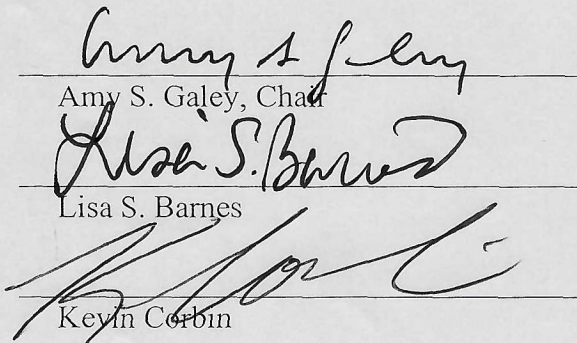 Amy S Galey
Amy S. Galey, Chair
Lisa S. Barnes
Lisa S. Barnes
K Corbin
Kevin Corbin